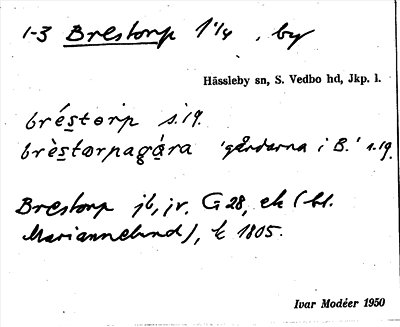 1-3 Brestorp 1 1/4, by
Hässleby sn, S. Vedbo hd, Jkp. l.
bréstorp s. 19.
brèstorpagára 'gårdarna i B.' s. 19.
Brestorp jb, jr, G 28, ek (bl.
Mariannelund), k 1805.
Ivar Modéer 1950